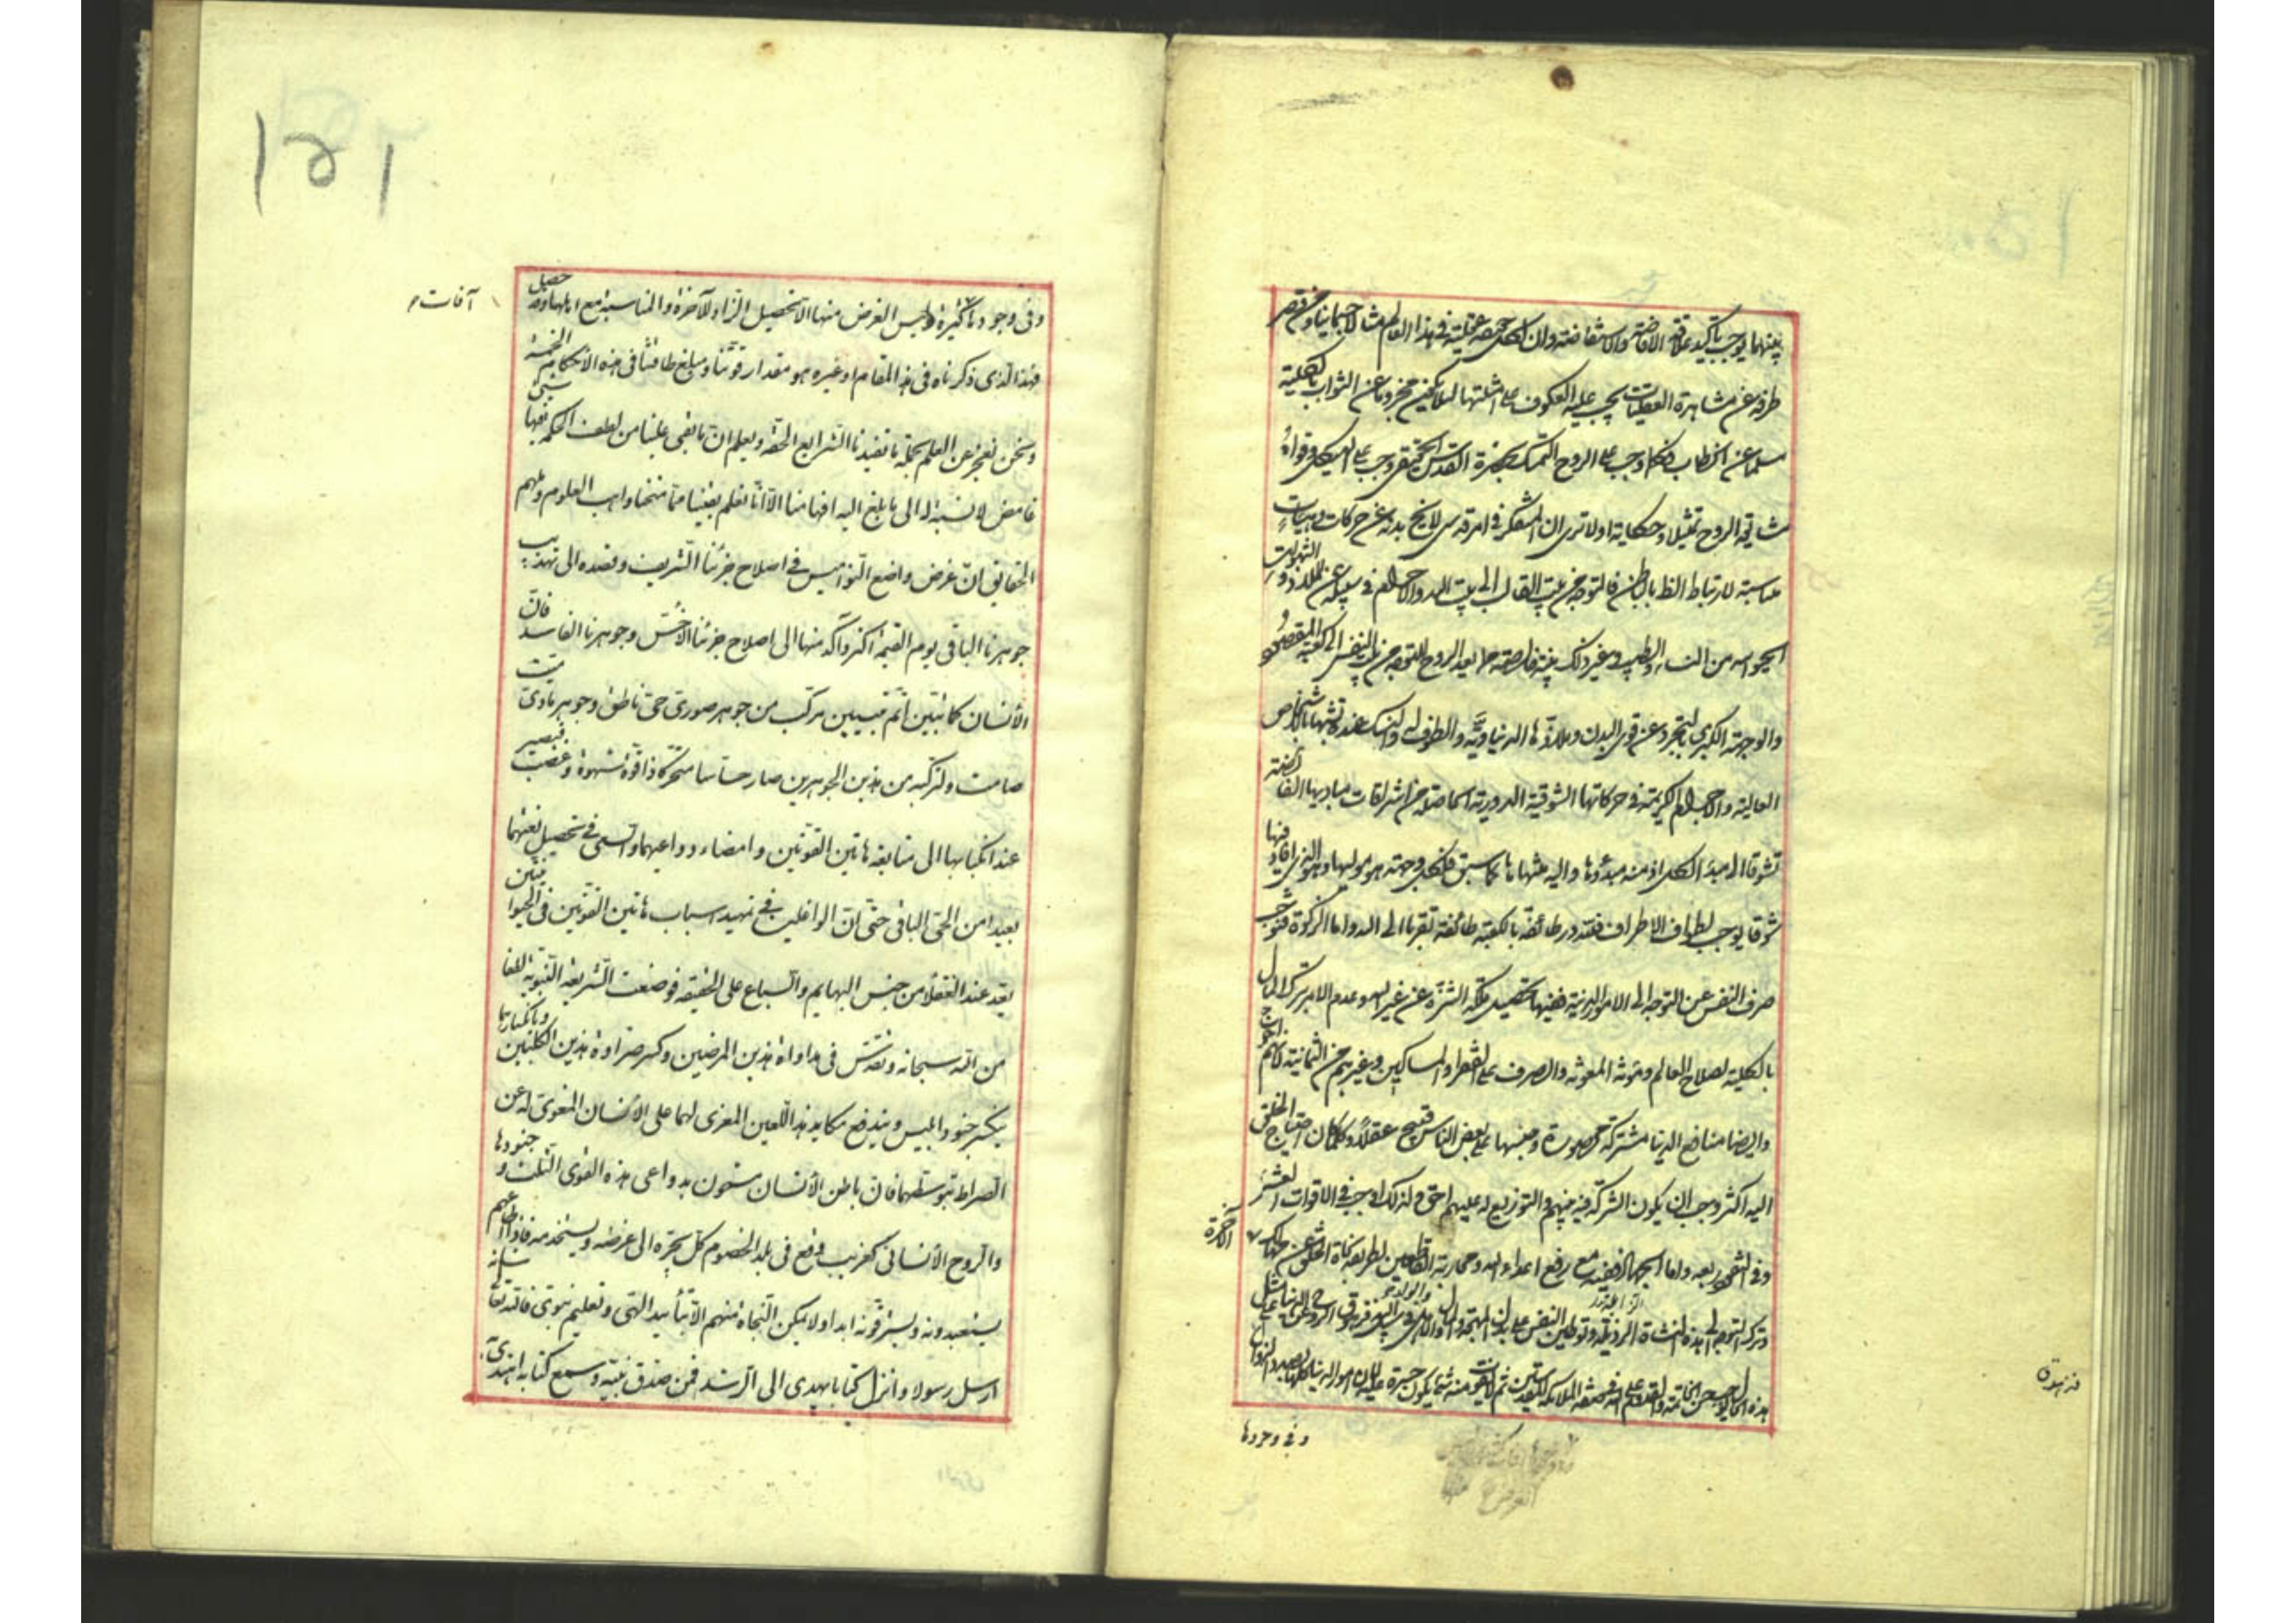 بينهما يوجب تأكيد علاقة الافاضة والاستفاضة وان لكل حقيقة عقلية في هذا العالم مثالا جسمانيا ومن قصر
طرفه عن مشاهدة العقليات يجب عليه العكوف على امثلتها لئلا يكون محروما عن الثواب بالكلية
عن الخطاب فكما وجب على الروح التمسك بحضرة القدس وجب على الهيكل وقواه
مشايعة الروح تمثيلا وحكاية اولا ترى ان المتفكر في امر قدسي لا يخ بدنه عن حركات وهيئات
مناسبة لارتباط الظ بالباطن فالتوجه من بيت القالب الى بيت الله والاحرام في سبيله عن الملاذ و الشهوات
الحيوانية من النساء والطيب وغير ذلك بنية خالصة الروح للتوجه من بيت النفس الى كعبة المقصود
والوجهة الكبرى بالتجرد عن قوى البدن وملاذها الدنياوية والطوف له والنسك عنده تشبها بالاشخاص
العالية والاجرام الكريمة في حركاتها الشوقية الدورية من اشراقات مباديها الفائضة
تشوقا الى مبدء الكل اذ منه مبدؤها واليه منتهاها كما سبق فلكل وجهة هو موليها وهو الذي افاد فيها
شوقا يوجب لطواف الاطراف فتدور طائفة بالكعبة طائفة تقربا الى الله واما الزكوة فتوجب
صرف النفس عن التوجه الى الامور الدنية ففيها تحصيل ملكة التنزه عن غير الله وعدم الامر بترك المال
بالكلية لصلاح العالم والصرف على الفقراء والمساكين وغيرهم من الثمانية لانهم احوج
وايضا منافع الدنيا مشتركة وحبسها على بعض الناس قبيح عقلا وكلما كان احتياج الخلق
اليه اكثر وجب ان يكون الشركة فيه بينهم والتوزيع له عليهم احق ولذلك اوجب في الاقوات العشر
وفي النقود ربعه واما الجهاد ففيه مع رفع اعداء الله ومحاربة القاطعين لطريقه نجاة الخلق عن مهالك الآخرة
وترك التوجه الى هذه النشأة الرذيلة وتوطين النفس على بذل المهجة والمال والاهل والولد
هذه الحال يوجب حسن الخاتمة والقدوم على الله في صفة الملائكة المقدسين
وفي وجودها
فرنهدق
١٥٢
وفي وجودها كثيرة وليس الغرض منها الا تحصيل الزاد للآخرة والمناسبة مع اهلها وحصيل
آفات
فهذا الذي ذكرناه في هذا المقام او غيره هو مقدار قوتنا ومبلغ طاقتنا في هذه الأحكام الخمسة
ونحن نعجز عن العلم بجملة ما تفيدنا الشرايع الحقة ونعلم ان ما بقي علينا من لطف الحكمة فيها شئ
غامض لا نسبة له الى ما بلغ اليه افهامنا الا انا نعلم يقينا مما منحنا واهب العلوم وملهم
الحقايق ان غرض واضع النواميس في اصلاح جزئنا الشريف وقصده الى تهذيب
جوهرنا الباقي يوم القيمة اكثر وآكد منها الى اصلاح جزئنا الأخس وجوهرنا الفاسد فان
الأنسان كما تبين اتم تبيين مركب من جوهر صوري حي ناطق وجوهر مادي ميت
صامت ولتركبه من هذين الجوهرين صار حساسا متحركا ذا قوة شهوة وغضب فيصير
عند انكبابها الى متابعة هاتين القوتين وامضاء دواعيهما والسعي في تحصيل بغيتهما
بعيدا من الحق الباقي حتى ان الواغلين في تمهيد اسباب هاتين القوتين الحيوانيتين
يعد عند العقلاء من جنس البهايم والسباع على الحقيقة فوضعت الشريعة النبوية لطفا
من الله سبحانه وتقدس في مداواة هذين المرضين وكسر ضراوة هذين الكلبين وبانكسارها
ينكسر جنود ابليس ويندفع مكايد هذا اللعين المغري لهما على الأنسان المغوي له عن
الصراط بتوسطهما فان باطن الأنسان مشحون بدواعي هذه القوى الثلث وجنودها
والروح الأنساني كغريب وقع في بلد الخصوم كل يجره الى غرضه ويستخدمه فاذا اطاعهم
يستعبدونه ويسترقونه ابدا ولا يمكن النجاة منهم الا بتأييد الهي وتعليم نبوي فالله تعالى شانه
ارسل رسولا وانزل كتابا يهدي الى الرشد فمن صدق نبيه وسمع كتابه اهتدى